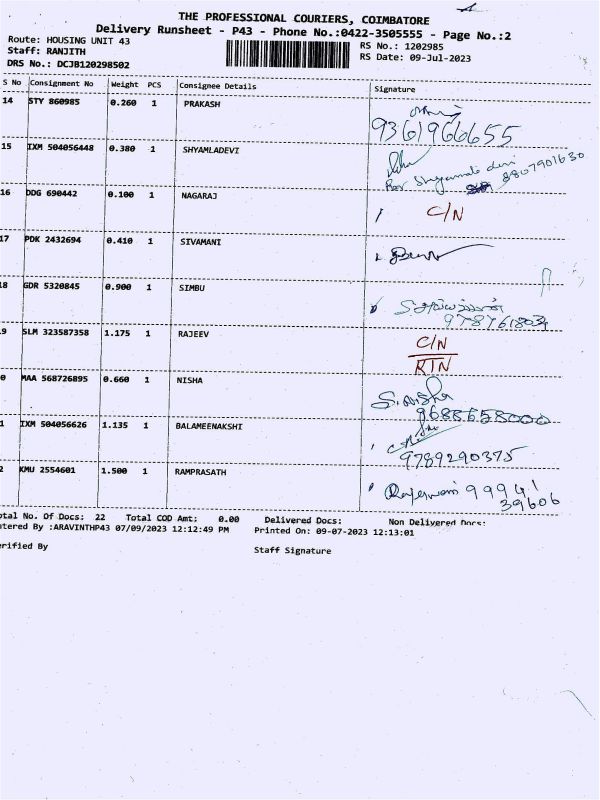 THE PROFESSIONAL COURIERS, COIMBATORE
Delivery Runsheet - P43 - Phone No.:0422-3505555 - Page No.:2
Route: HOUSING UNIT 43
Staff: RANJITH
DRS No.: DCJB120298502
RS No.: 1202985
RS Date: 09-Jul-2023
S No Consignment No Weight PCS Consignee Details Signature
14 STY 860985 0.260 1 PRAKASH
9361966655
15 IXM 504056448 0.380 1 SHYAMLADEVI
8807901630
16 DDG 690442 0.100 1 NAGARAJ C/N
17 PDK 2432694 0.410 1 SIVAMANI
18 GDR 5320845 0.900 1 SIMBU
9 SLM 323587358 1.175 1 RAJEEV C/N
RTN
0 MAA 568726895 0.660 1 NISHA S. Nisha
9688658000
1 IXM 504056626 1.135 1 BALAMEENAKSHI
9789290375
2 KMU 2554601 1.500 1 RAMPRASATH 99941
39606
otal No. Of Docs: 22 Total COD Amt: 0.00 Delivered Docs: Non Delivered Docs:
ntered By :ARAVINTHP43 07/09/2023 12:12:49 PM Printed On: 09-07-2023 12:13:01
erified By Staff Signature